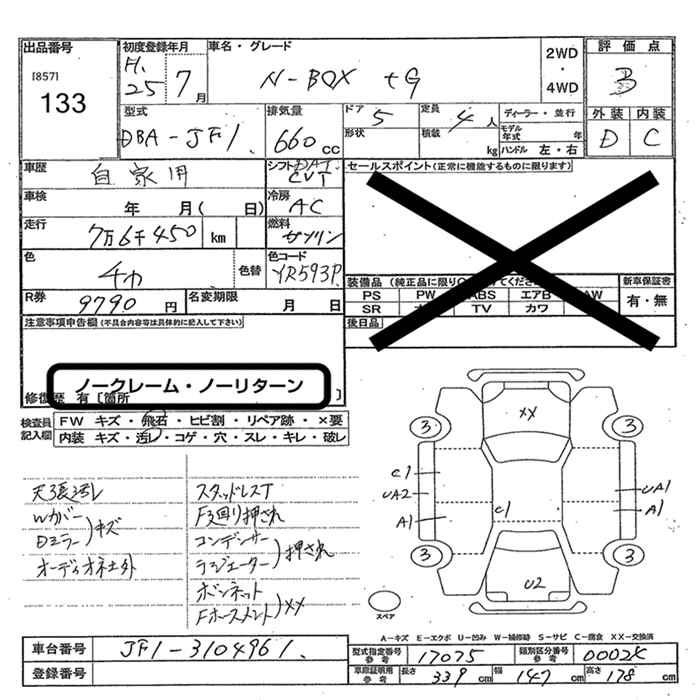 出品番号 初度登録年月 車名・グレード 2WD・4WD 評価点
[857] 133 H.25 7月 N-BOX +G B
型式 排気量 ドア 5 定員 4人 ディーラー・並行 外装 内装
DBA-JF1 660cc 形状 積載 kg モデル年式 年 ハンドル 左・右 D C
車歴 自家用 シフト DAT CVT セールスポイント(正常に機能するものに限ります)
車検 年 月( 日) 冷房 AC
走行 7万6千450 km 燃料 ガソリン
色 チャ 色替 色コード YR593P 装備品(純正品に限り 新車保証書
PS PW ABS エアB AW 有・無
R券 9790円 名変期限 月 日 SR TV カワ
注意事項申告欄(不具合内容等は具体的に記入して下さい) 後日品
ノークレーム・ノーリターン
修復歴 有[箇所 ]
検査員記入欄 FW キズ・飛石・ヒビ割・リペア跡・×要
内装 キズ・汚レ・コゲ・穴・スレ・キレ・破レ
天張汚レ スタッドレスT
Wカバー F廻り押され
Dミラー)キズ コンデンサー
オーディオネ土外 ラジエーター)押され
ボンネット
Fホースメント)XX
XX
3 3
C1
UA2 C1 UA1
A1 A1
3 3
U2
スペア
A-キズ E-エクボ U-凹み W-補修跡 S-サビ C-腐食 XX-交換済
車台番号 JF1-3104961 型式指定番号 参考 17075 類別区分番号 参考 0002
登録番号 車庫証明用 参考 長さ 339cm 幅 147cm 高さ 178cm